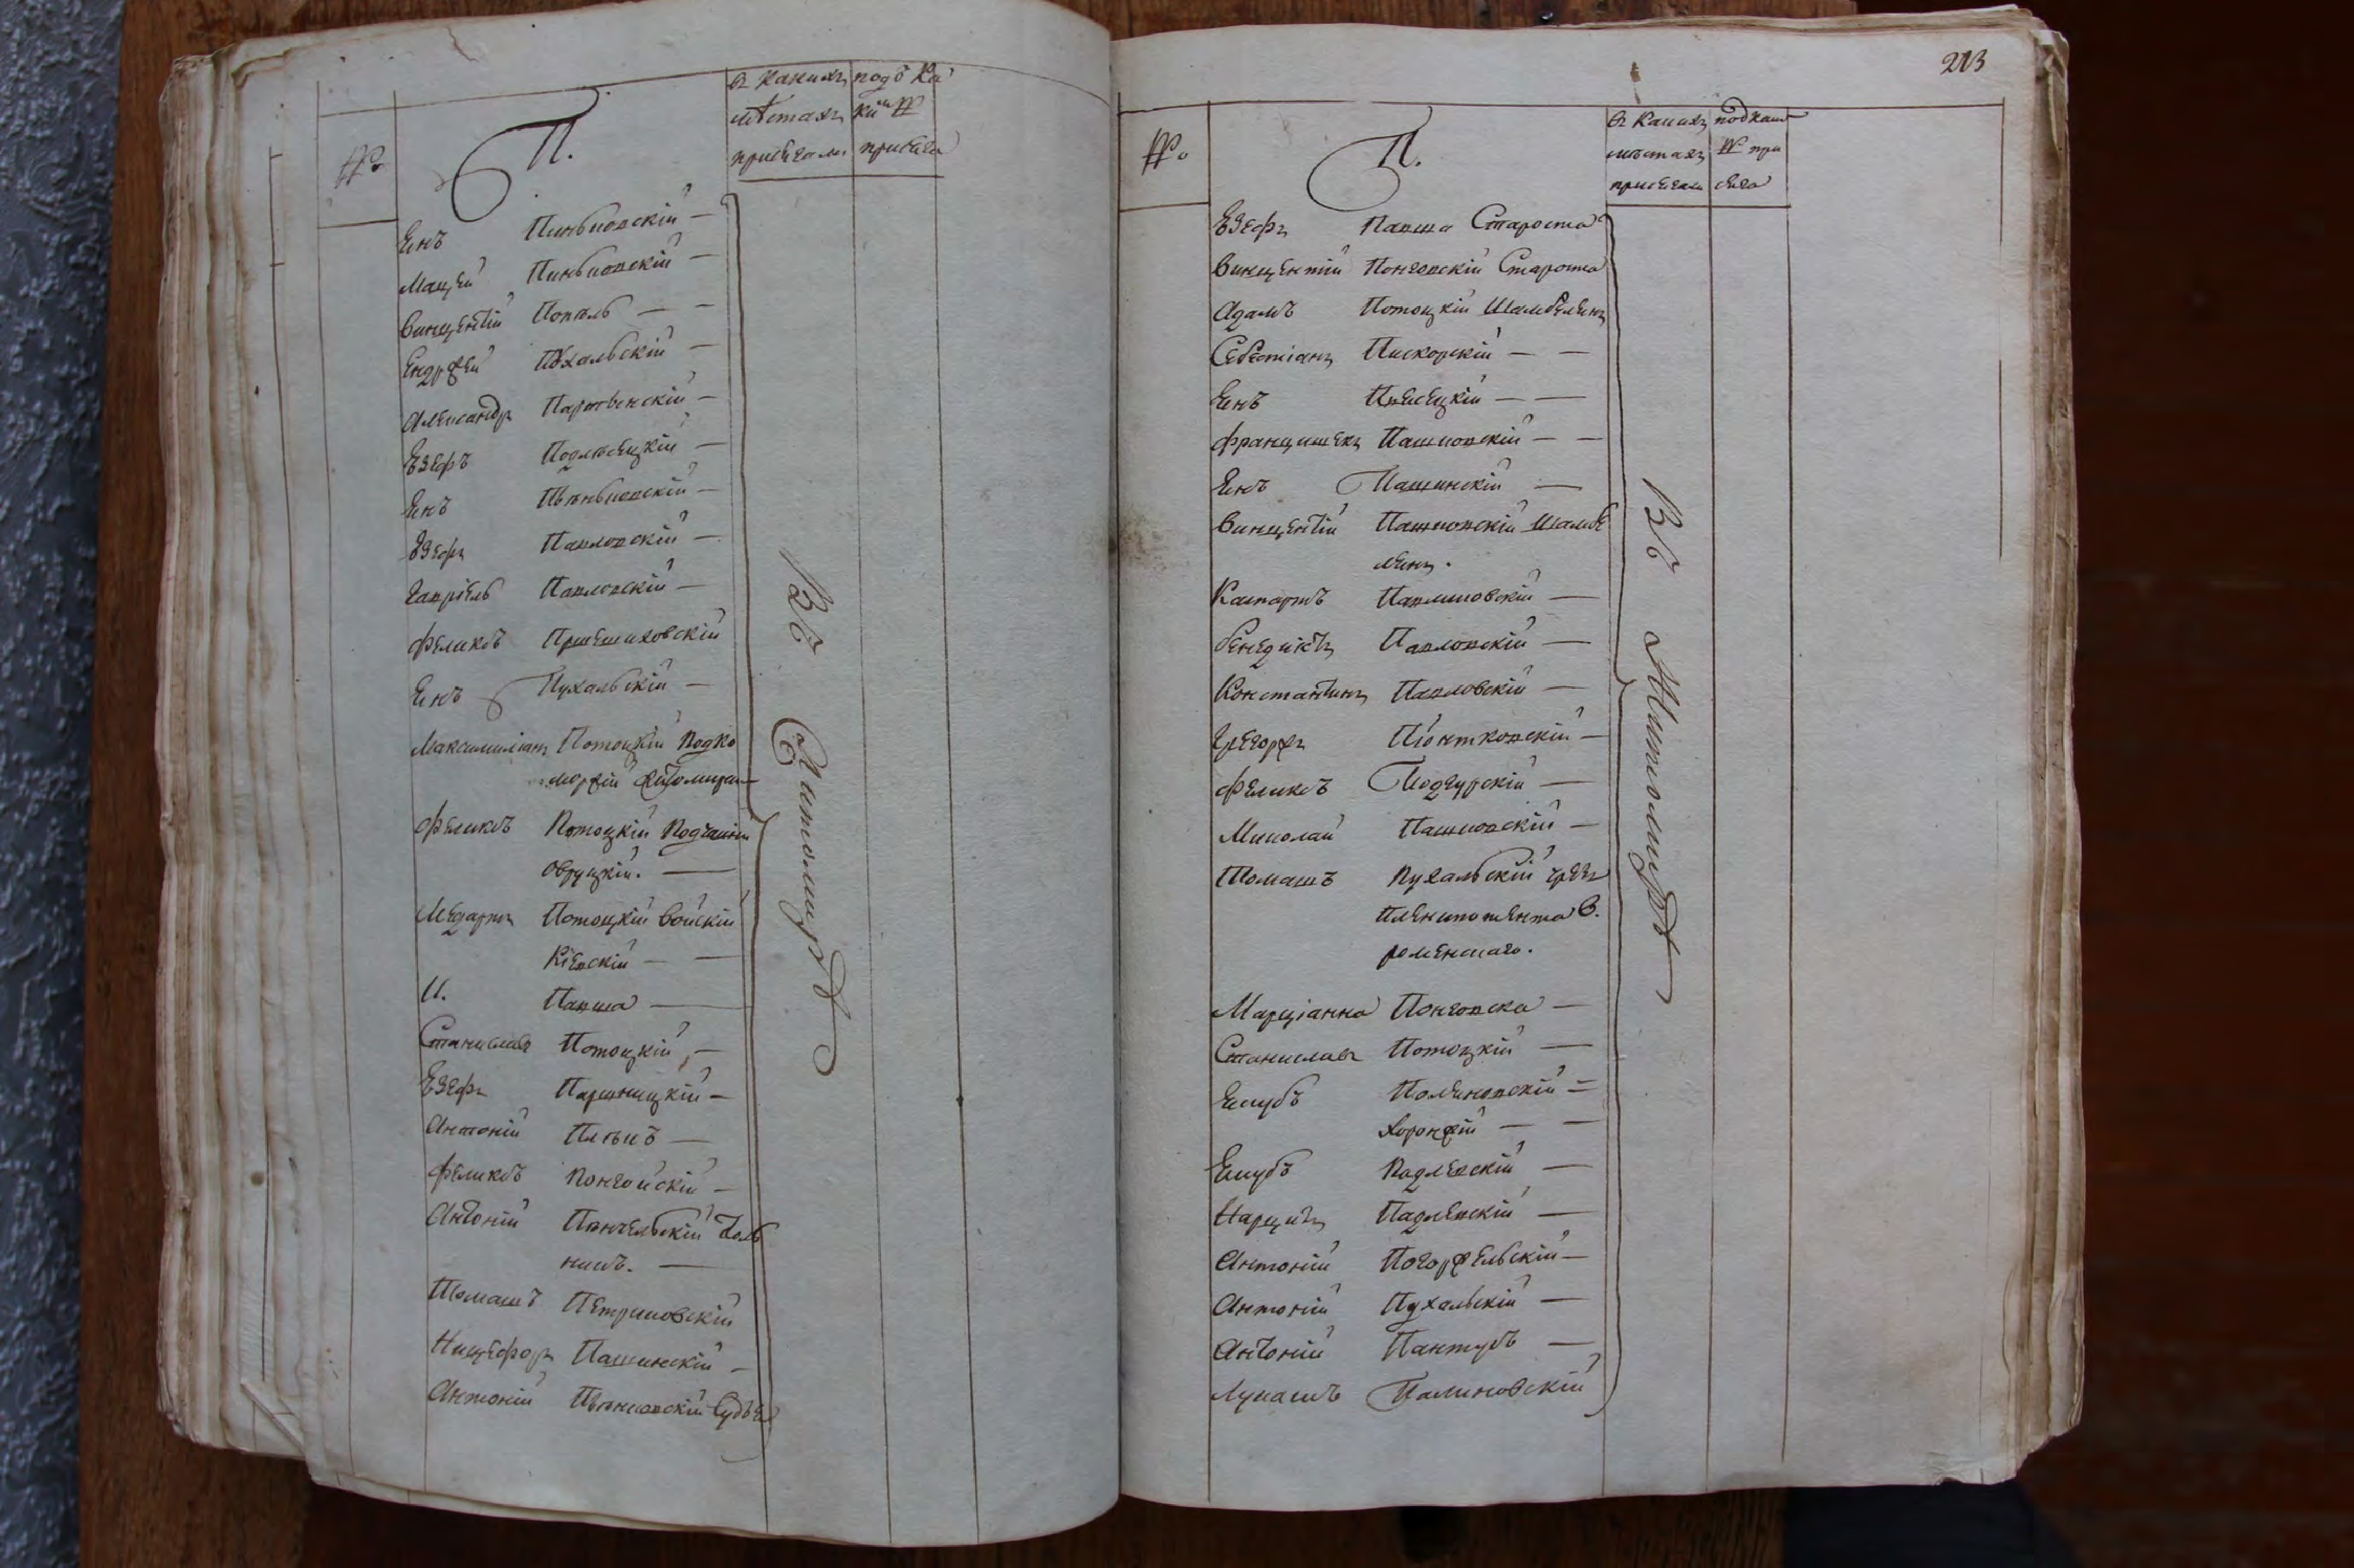 №
П.
в каких местах присягали
подъ каким № присяга
Еинъ Пинковскій —
Мацей Пиньковскій —
Винцентій Попель — —
Ендржей Пухальскій —
Александр
Езефъ Подлесецкій —
Еинъ Пѣньковскій —
Езефъ Павловскій —
Гавріель Павловскій —
Феликсъ Пржешиховскій
Еинъ Пухальскій —
Максимиліанъ Потоцкій Подко
моржій Житомирскій
Феликсъ Потоцкій Подчашій
Овруцкій. —
Медартъ Потоцкій Войскій
Кіевскій — —
И. Павша —
Станиславъ Потоцкій —
Езефъ Паршницкій —
Антоній —
Феликсъ Понговскій —
Антоній
никъ. —
Томашъ Петриковскій
Ницефоръ Пашинскій —
Антоній Пѣнковскій Судья
Въ Житомирѣ
213
№
П.
в каких местах присягали
под каким № присяга
Езефъ Павша Староста
Винцентій Понговскій Староста
Адамъ Потоцкій Шамбелянъ
Себестіанъ Пискорскій — —
Еинъ Песецкій — —
Францишекъ Пашковскій — —
Еинъ Пашинскій —
Винцентій Пашковскій Шамбе
лянъ.
Каспаръ Павликовскій —
Бенедиктъ Павловскій —
Константинъ Павловскій —
Грегоржъ Піонтковскій —
Феликсъ Подгурскій —
Миколай Пашковскій —
Томашъ Пухальскій чрезъ
пленипотента В.
роменскаго.
Марціанна Понговска —
Станиславъ Потоцкій —
Якубъ Поляновскій =
Хоронжій — —
Якубъ Подлевскій —
Нарцизъ Падлевскій —
Антоній Погоржельскій —
Антоній Пухальскій —
Антоній Пантусъ —
Лукашъ Палиновскій
Въ Житомирѣ